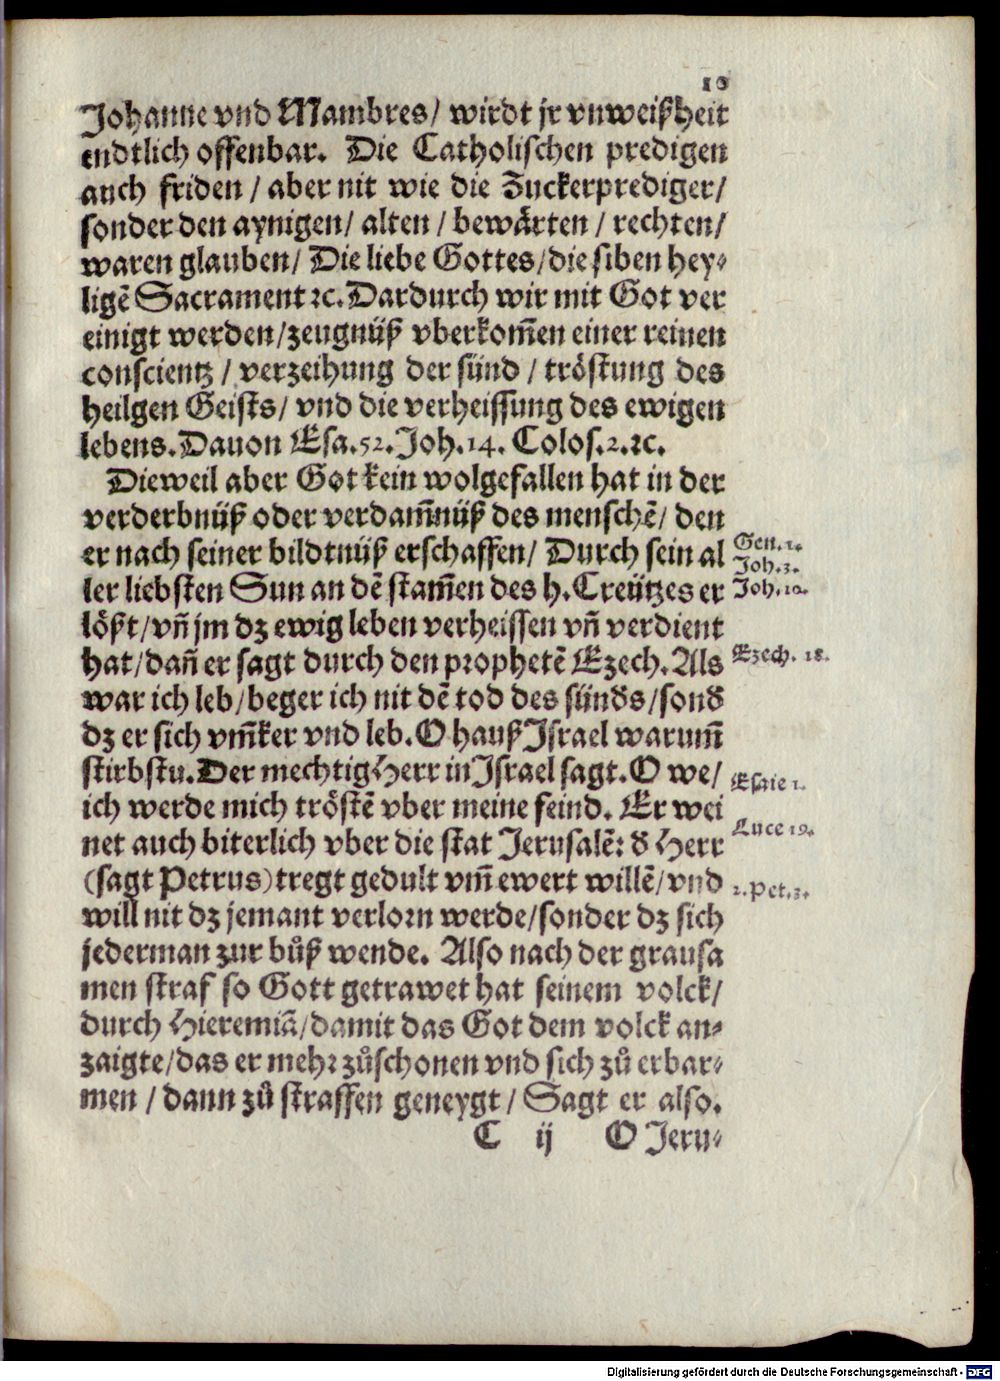 10
Johanne vnd Mambres/ wirdt jr vnweißheit
endtlich offenbar. Die Catholischen predigen
auch friden / aber nit wie die Zuckerprediger/
sonder den aynigen/ alten / bewårten / rechten/
waren glauben/ Die liebe Gottes/die siben hey⸗
ligẽ Sacrament ꝛc. Dardurch wir mit Got ver
einigt werden/zeugnüß vberkom̃en einer reinen
conscientz / verzeihung der sünd / tröstung des
heilgen Geists/ vnd die verheissung des ewigen
lebens. Dauon Esa.52. Joh.14. Colos.2.ꝛc.
Dieweil aber Got kein wolgefallen hat in der
verderbnüß oder verdam̃nüß des menschẽ/ den
er nach seiner bildtnüß erschaffen/ Durch sein al
ler liebsten Sun an dẽ stam̃en des h. Creützes er
lößt/vñ jm dz ewig leben verheissen vñ verdient
hat/dañ er sagt durch den prophetẽ Ezech. Als
war ich leb/beger ich nit dẽ tod des sünders/sonder
dz er sich vm̃ker vnd leb. O hauß Israel warum̃
stirbstu. Der mechtig Herr in Israel sagt. O we/
ich werde mich tröstẽ vber meine feind. Er wei
net auch biterlich vber die stat Jerusalẽ: d' Herr
(sagt Petrus) tregt gedult vm̃ ewert willẽ/vnd
will nit dz jemant verlorn werde/sonder dz sich
jederman zur bůß wende. Also nach der grausa
men straf so Gott getrawet hat seinem volck/
durch Hieremiã/damit das Got dem volck an⸗
zaigte/das er mehr zůschonen vnd sich zů erbar⸗
men / dann zů straffen geneygt / Sagt er also.
C ij O Jeru⸗
Gen. 1.
Joh. 3.
Joh. 10.
Ezech. 18.
Esaie 1.
Luce 19.
2. Pet. 3.
Digitalisierung gefördert durch die Deutsche Forschungsgemeinschaft - DFG